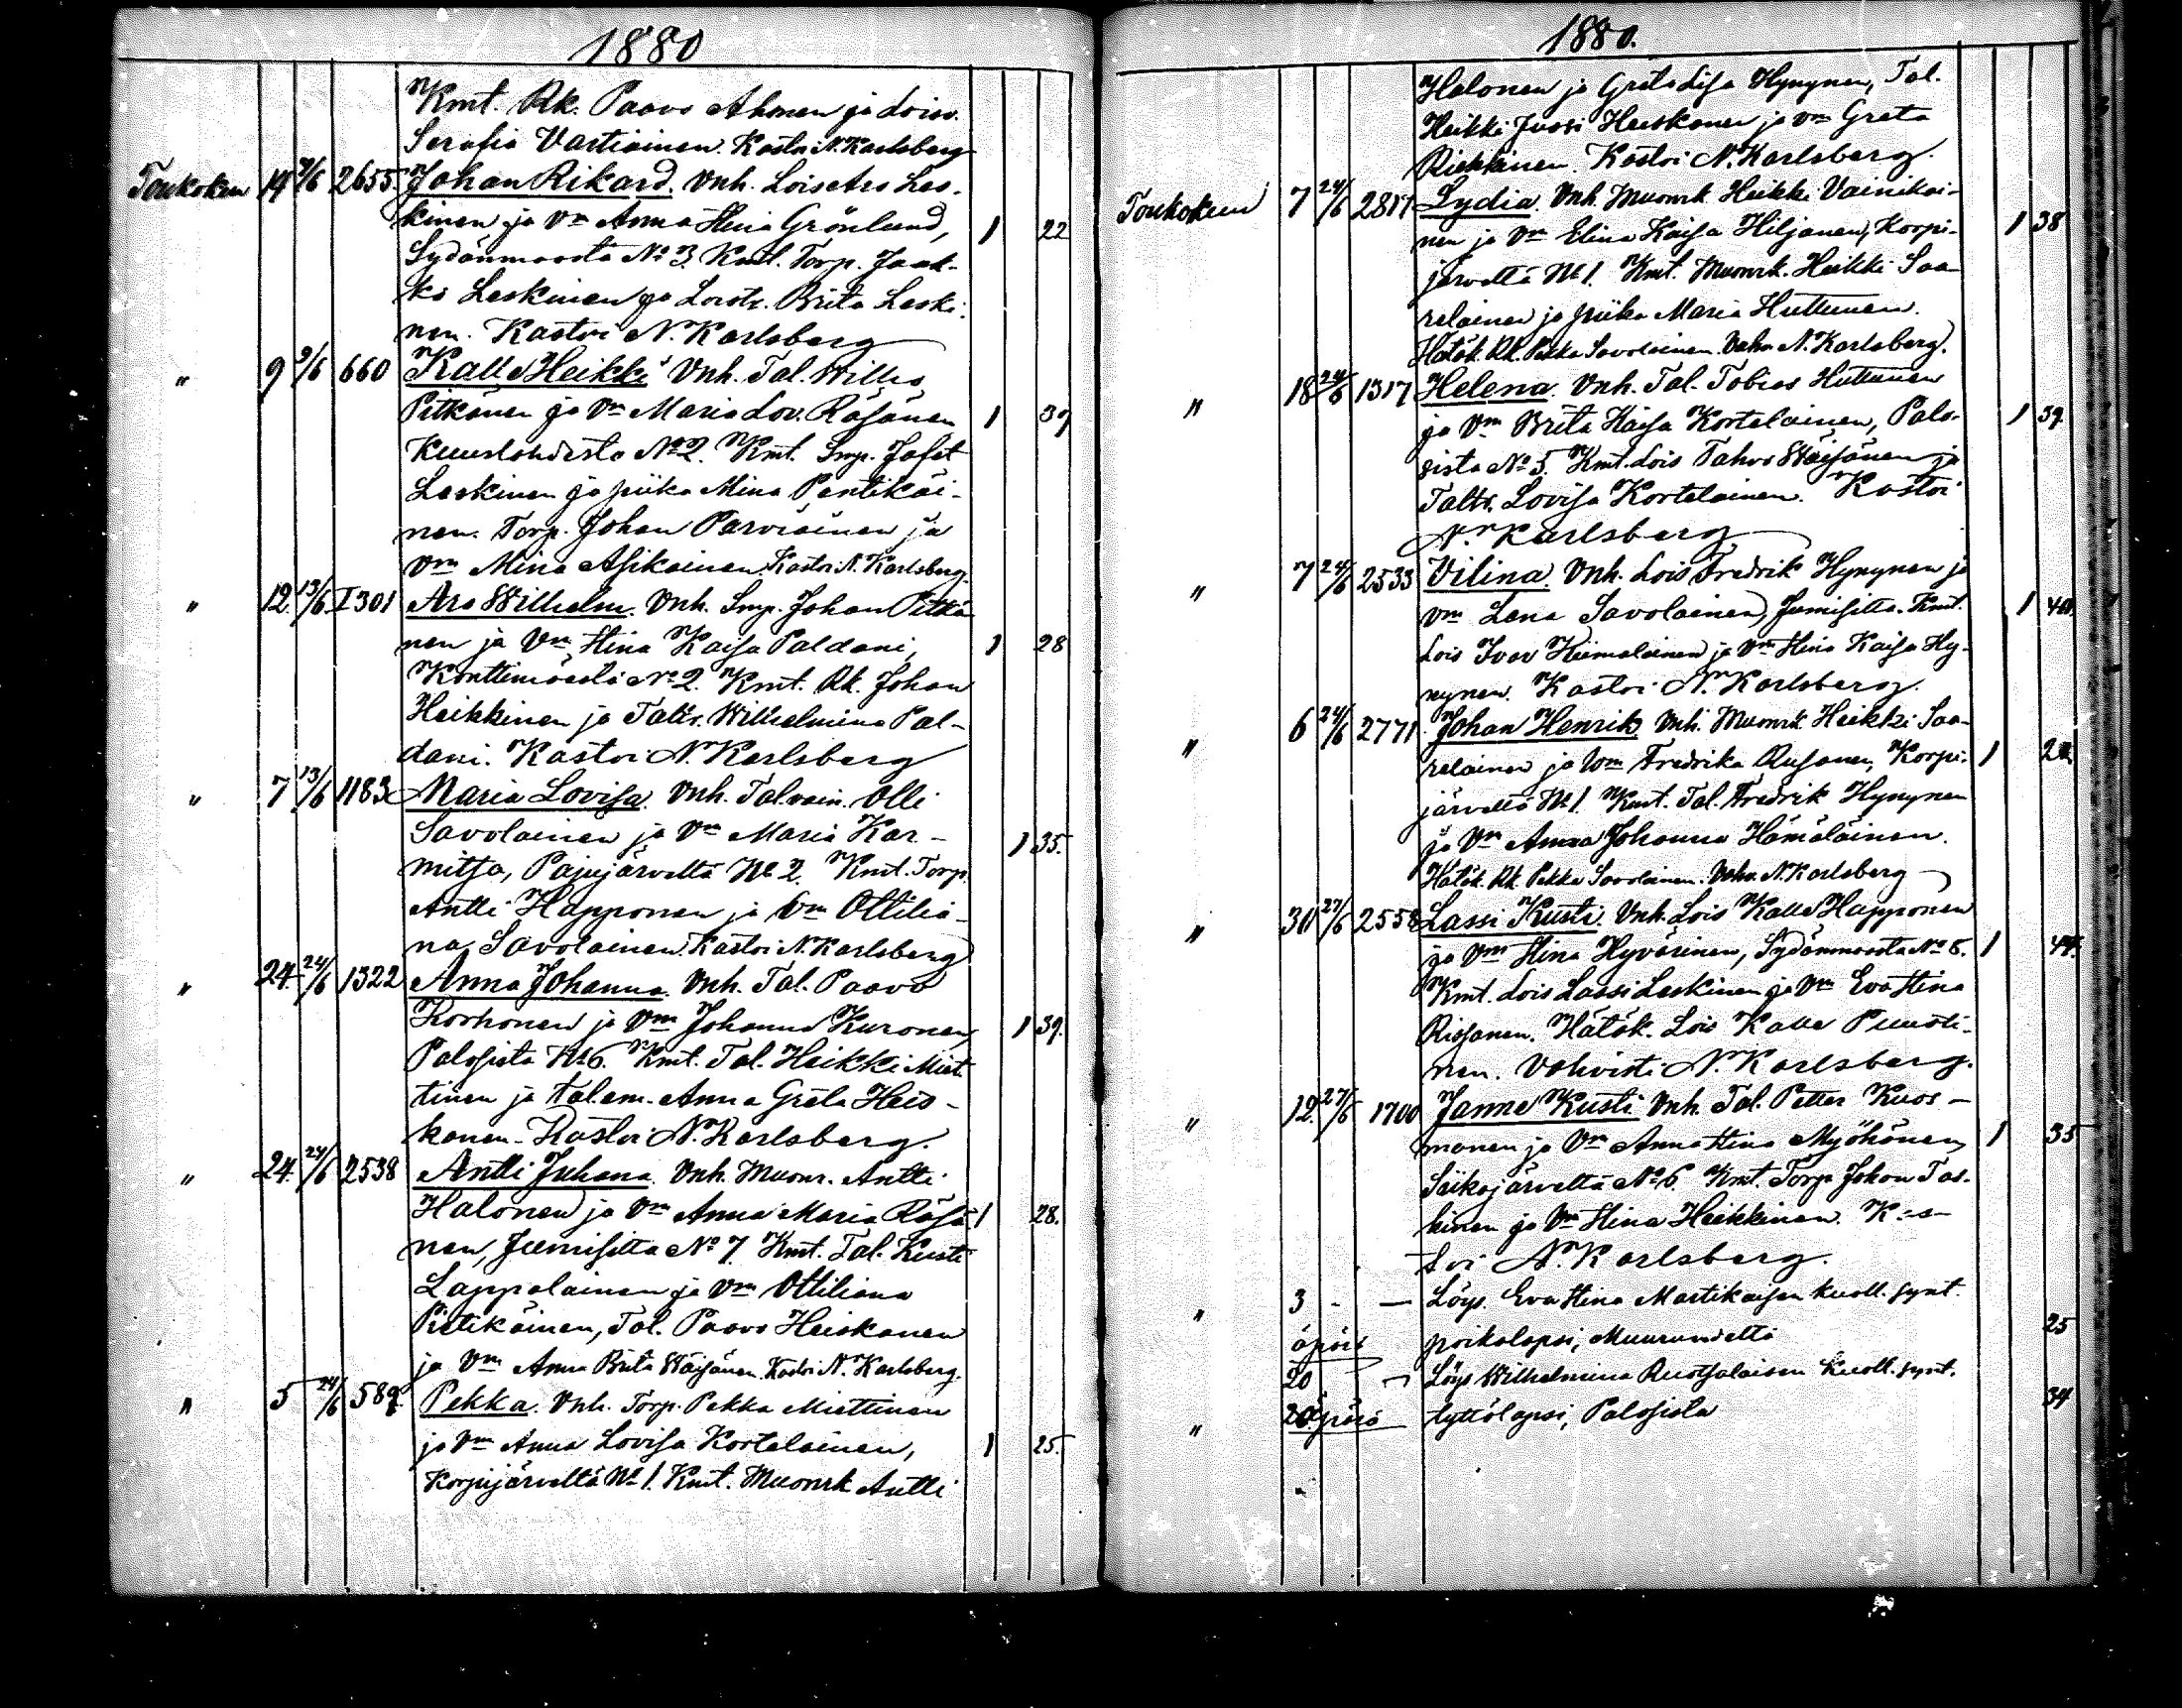 1880
Kmt. Rk. Paavo Ahonen ja Loisv.
Serafia Vartiainen. Kastoi N. Karlsberg
Toukokuu 19 9/6 2655. Johan Rikard. Vnh. Lois Ares Les-
kinen ja Vm Anna Stina Grönlund, 1 22
Sydänmaasta No 3. Kmt. Torp. Jaak-
ko Leskinen ja Loistr. Brita Leski-
nen. Kastoi N. Karlsberg
" 9 9/6 660 Kalle Heikki Vnh. Tal. Wilho
Pitkänen ja Vm Maria Lov. Räsänen 1 37
Kuuslahdesta No 2. Kmt. Smp. Jafet
Leskinen ja piika Mina Pentikäi-
nen. Torp. Johan Parviainen ja
Vm Mina Asikainen. Kastoi N. Karlsberg.
" 12. 13/6. I301 Aro Wilhelm. Vnh. Smp. Johan Pitkä-
nen ja Vm Stina Kaisa Paldani, 1 28
Konttimäestä No 2. Kmt. Rk. Johan
Heikkinen ja Taltr. Wilhelmina Pal-
dani. Kastoi N. Karlsberg
" 7 13/6 1183 Maria Lovisa. Vnh. Talvain. Olli
Savolainen ja Vm Maria Kar- 1 35.
mitsa, Pajujärveltä No 2. Kmt. Torp.
Antti Happonen ja Vm Ottilia-
na Savolainen. Kastoi N. Karlsberg
" 24. 24/6 1322 Anna Johanna. Vnh. Tal. Paavo
Korhonen ja Vm Johanna Kuronen, 1 39.
Palosista No 6. Kmt. Tal. Heikki Miet-
tinen ja talem. Anna Greta Heis-
kanen. Kastoi N. Karlsberg.
" 24. 24/6 2538 Antti Juhana. Vnh. Muonr. Antti
Halonen ja Vm Anna Maria Räsä- 1 28.
nen, Jumisilta No 7. Kmt. Tal. Kusti
Lappalainen ja Vm Ottiliana
Pietikäinen, Tal. Paavo Heiskanen
ja Vm Anna Brita Wäisänen. Kastoi N. Karlsberg.
" 5 24/6 589. Pekka. Vnh. Torp. Pekka Miettinen
ja Vm Anna Lovisa Kortelainen, 1 25.
Korpijärveltä No 1. Kmt. Muonrk Antti
1880.
Halonen ja Greta Lisa Hynynen, Tal.
Heikki Jussi Heiskanen ja Vm Greta
Riekkinen. Kastoi N. Karlsberg.
Toukokuu 7 24/6 2817 Lydia. Vnh. Muonrk Heikki Vainikai-
nen ja Vm Elina Kaisa Hiljanen, Korpi- 1 38
järveltä No 1. Kmt. Muonrk. Heikki Saa-
relainen ja piika Maria Huttunen.
Hätäk. Rk. Pekka Savolainen. Vahv. N. Karlsberg.
" 18 24/6 1317 Helena. Vnh. Tal. Tobias Huttunen
ja Vm Brita Kaisa Kortelainen, Palo- 1 39.
sista No 5. Kmt. Lois Tahvo Wäisänen ja
Taltr. Lovisa Kortelainen. Kastoi
N. Karlsberg
" 7 24/6 2533 Vilina. Vnh. Lois Fredrik Hynynen ja
Vm Lena Savolainen, Jumisilta. Kmt. 1 40.
Lois Ivar Hiimalainen ja Vm Stina Kaisa Hy-
nynen. Kastoi N. Karlsberg.
" 6 24/6 2771 Johan Henrik. Vnh. Muonrk Heikki Saa-
relainen ja Vm Fredrika Rusanen, Korpi- 1
järveltä No 1. Kmt. Tal. Fredrik Hynynen
ja Vm Anna Johanna Hämäläinen.
Hätäk. Rk. Pekka Savolainen. Vahv. N. Karlsberg
" 30 27/6 2558 Lassi Kusti. Vnh. Lois Kalle Happonen
ja Vm Stina Hyvärinen, Sydänmaasta No 8. 1 44.
Kmt. Lois Lassi Leskinen ja Vm Eva Stina
Rissanen. Hätäk. Lois Kalle Puusti-
nen. Vahvisti N. Karlsberg.
" 12. 27/6 1700 Janne Kusti. Vnh. Tal. Petter Kuos-
manen ja Vm Anna Stina Myöhänen, 1 35
Siikajärveltä No 6. Kmt. Torp. Johan Tas-
kinen ja Vm Stina Heikkinen. Kas-
toi N. Karlsberg.
" 3 - — Löys. Eva Stina Martikaisen kuoll. synt.
äpärä poikalapsi, Muuruvedeltä 25
20 Löys Wilhelmina Ruotsalaisen kuoll. synt.
" äpärä tyttölapsi, Palosista 34